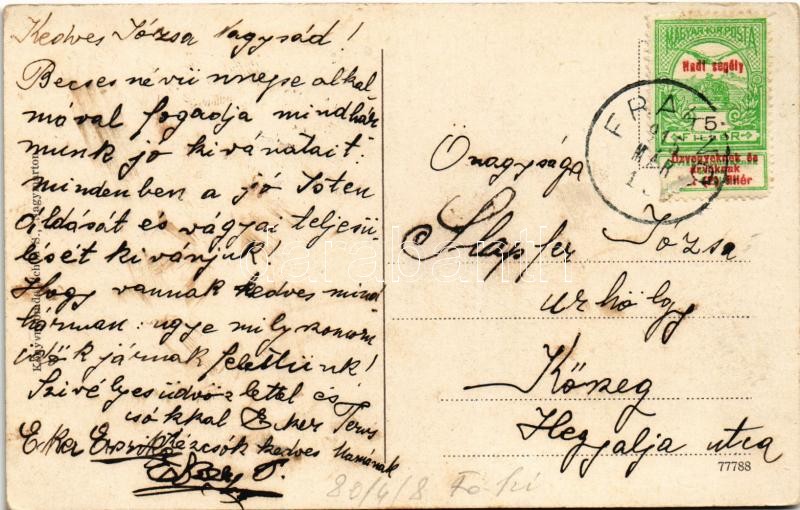 Kedves Józsa Nagysád!
Becses névünnepe alkal
mával fogadja mindhár
munk jó kivánatait:
mindenben a jó Isten
áldását és vágyai teljesü
lését kivánjuk!
Hogy vannak kedves mind
hárman: ugye mily
idők járnak felettünk!
Szivélyes üdvözlettel és
csókkal Eker Terus
Eker kézcsók kedves Mamának
MAGYAR·KIR·POSTA
Hadi segély
5
FILLÉR
Özvegyeknek és
árváknak
fillér
FRA
MÁR
Önagysága
Slapfer Józsa
urhölgy
Kőszeg
Hegyalja utca
77788
80/4/8
darabanth